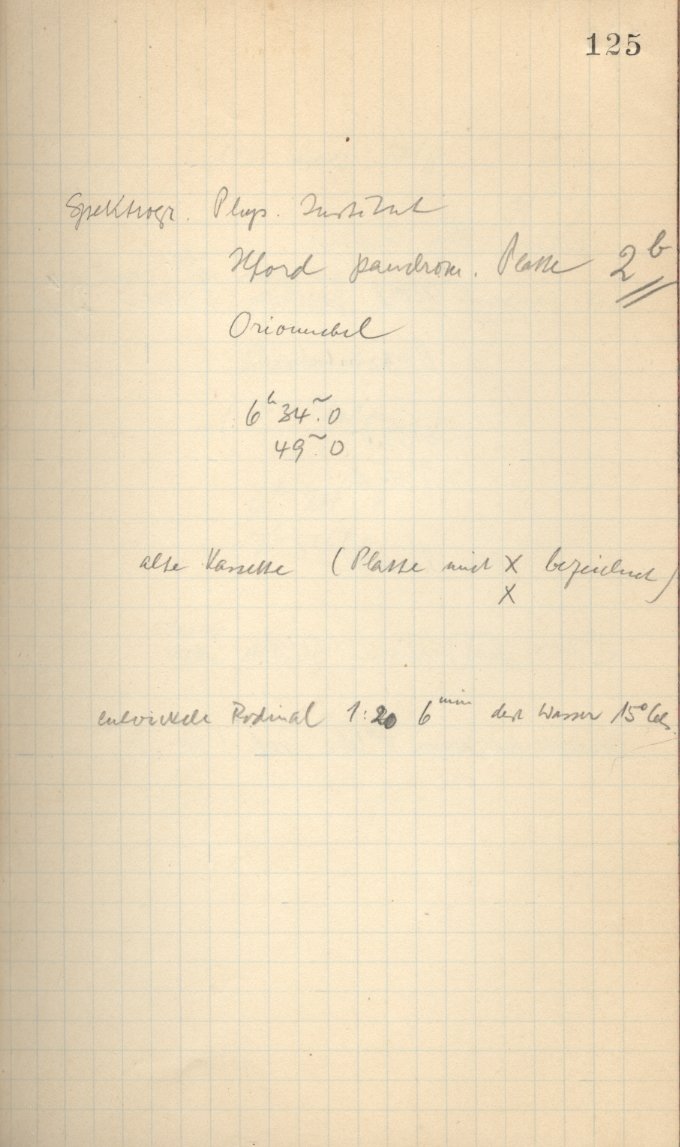 125
Spektrogr. Phys. Institut
Ilford panchrom. Platte 2b
Orionnebel
6h 34m.0
49m.0
alte Kassette (Platte mit X bezeichnet)
X
entwickelt Rodinal 1:20 6min dest Wasser 15° Cels.